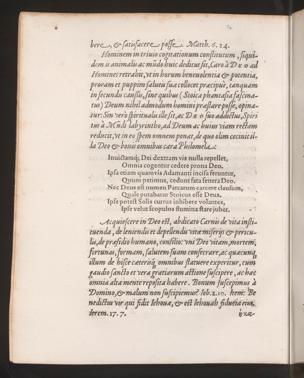 bere, & satisfacere posse. Matth. 6. 24.
Hominem in trivio cogitationum constitutum, siqui-
dem is animali ac mūdo huic deditus sit, Caro à Deo ad
Homines retrahit, ut in horum benevolentia & potentia,
proram et puppim salutis suæ collocet præcipuè, tanquam
in secundis causis, sine quibus (Stoica phantasia fascina-
tus) Deum nihil admodum homini præstare posse, opina-
tur: Sin verò spiritualis ille sit, ac Deo suo addictus, Spiri-
tus à Mundi labyrintho, ad Deum ac huius viam rectam
reducit, ut in eo spem omnem ponat, de quo olim cecinit il-
la Deo & bonis omnibus cara Philomela.
Invictamq; Dei dextram vis nulla repellet,
Omnia cogentur cedere prona Deo.
Ipsa etiam quamvis Adamanti incisa ferantur,
Quum petimus, cedunt fata severa Deo.
Nec Deus est numen Parcarum carcere clausum,
Quale putabatur Stoicus esse Deus.
Ipse potest Solis currus inhibere volantes,
Ipse velut scopulos flumina stare jubet.
Acquiescere in Deo est, abdicato Carnis de vita insti-
tuenda, de leniendis et depellendis vitæ miseriis & pericu-
lis, de præsidio humano, consilio: uni Deo vitam, mortem,
fortunas, formam, salutem suam consecrare, ac quæcunq
illum de hisce cæterisq omnibus statuere experitur, cum
gaudio sancto et vera gratiarum actione suscipere, ac hæc
omnia alta mente reposita habere. Bonum suscepimus à
Domino, & malum non suscipiemus? Iob. 2. 10. hem: Be
nedictus vir qui fidit Iehovæ, & est Iehovah fiducia eius,
Ierem. 17. 7.